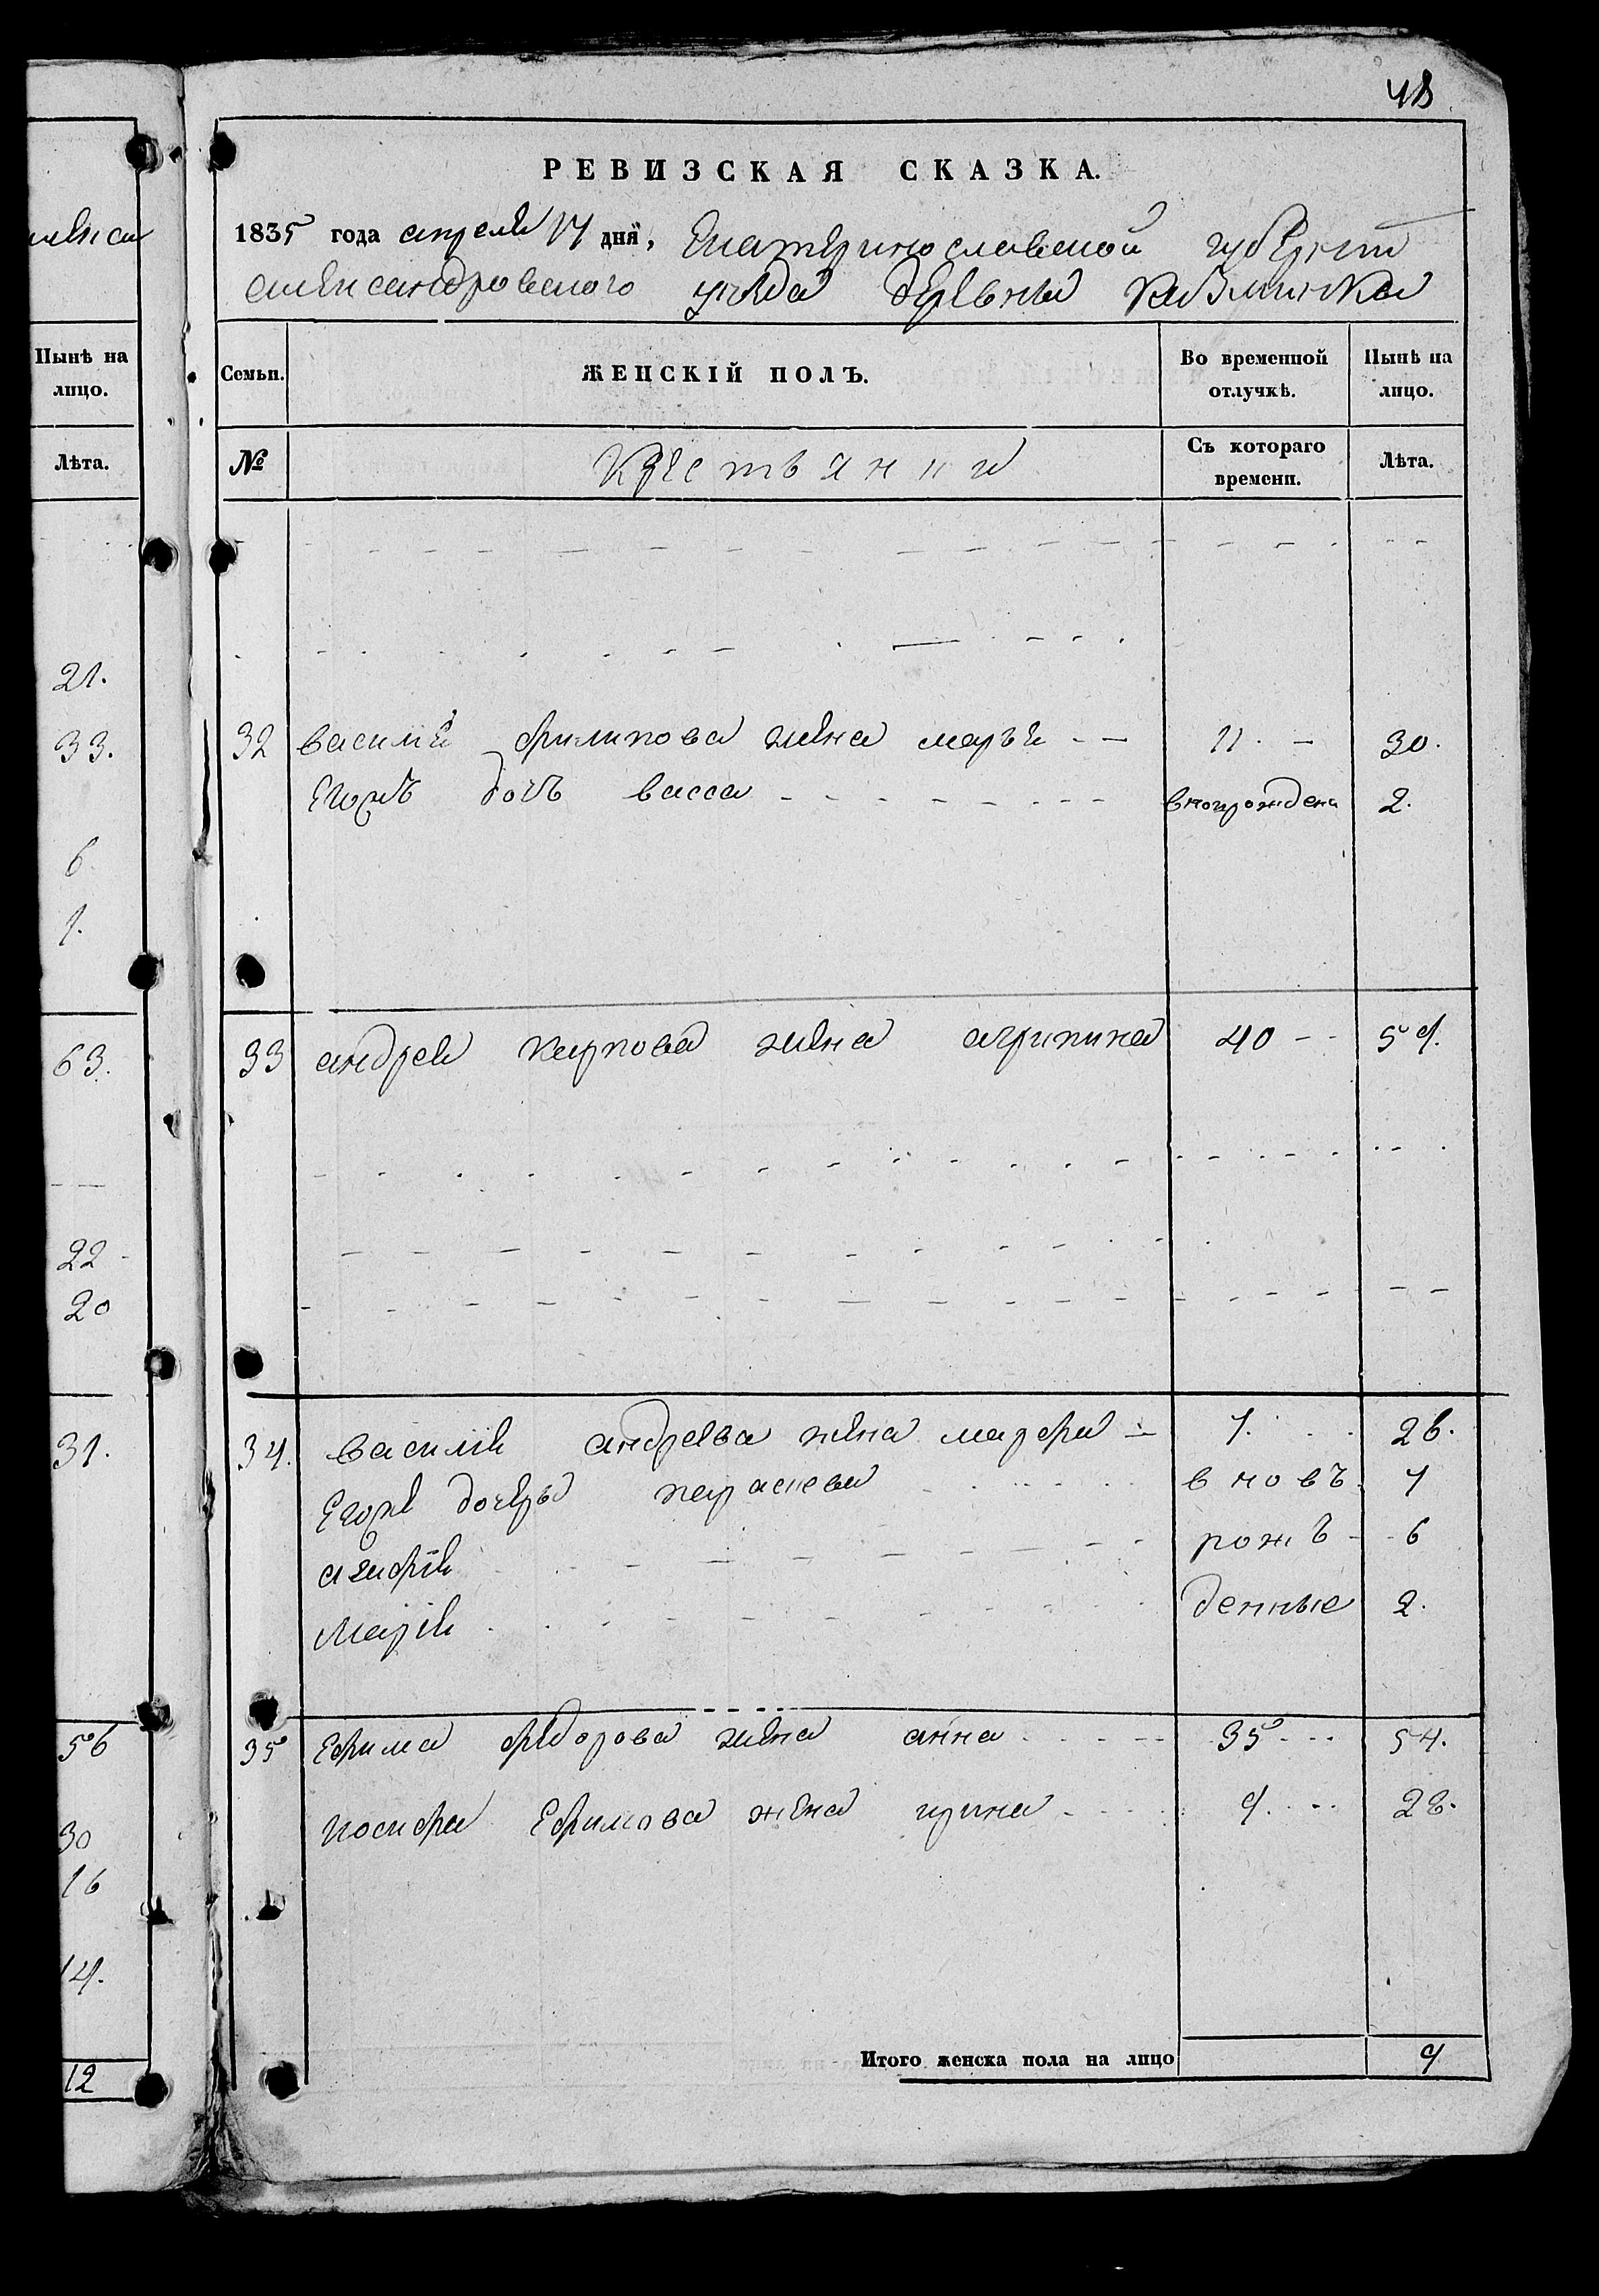 48
РЕВИЗСКАЯ СКАЗКА.
1835 года апреля 17 дня, Екатеринославской губернии
александровского уезда деревни
Семьи. ЖЕНСКІЙ ПОЛЪ. Во временной отлучкѣ. Нынѣ на лицо.
№ Крестьянки Съ котораго времени. Лѣта.
32 василия филипова жена марья 11. 30.
Его дочь васса вновьрождена 2.
33 андрея карпова жена агрипина 40 59.
34. василия андреева жена марфа 7. 26.
Его дочери параскева вновъ 7
агафия рожъ 6
Мария денные 2.
35 Ефима федорова жена анна 35 54.
иосифа Ефимова жена ирина 9. 28.
Итого женска пола на лицо 9
Нынѣ на
лицо.
Лѣта.
21.
33.
6.
1.
63.
22
20
31.
56
30
16
14.
12